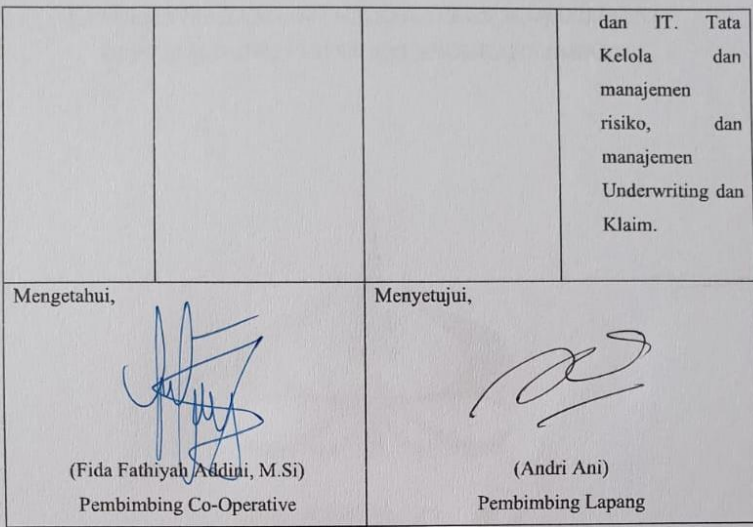 dan IT. Tata
Kelola dan
manajemen
risiko, dan
manajemen
Underwriting dan
Klaim.
Mengetahui,
(Fida Fathiyah Addini, M.Si)
Pembimbing Co-Operative
Menyetujui,
(Andri Ani)
Pembimbing Lapang